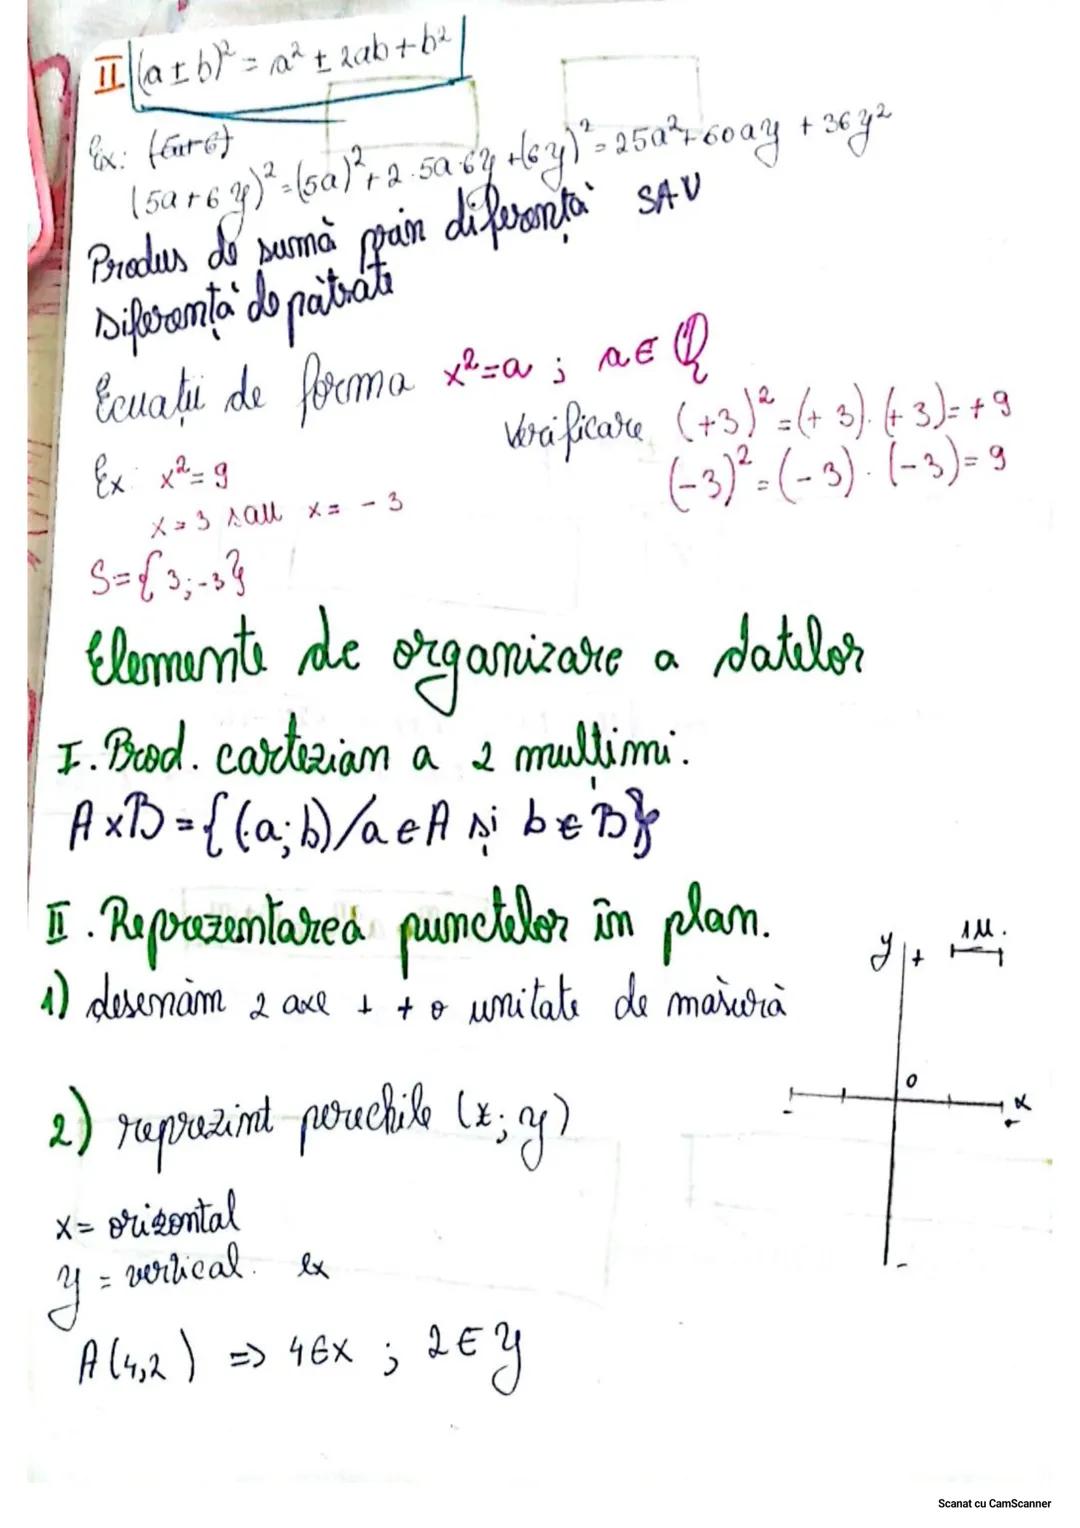 II (a±b)² = a² ± 2ab + b²
Ex:
(5a+6y)² = (5a)² + 2·5a·6y + (6y)² = 25a² + 60ay + 36y²
Produs de sumă prin diferență SAU
Diferență de pătrate
Ecuații de forma x²=a ; a∈Q
Verificare (+3)² = (+3)·(+3) = +9
Ex: x² = 9
(-3)² = (-3)·(-3) = 9
x=3 sau x=-3
S={3;-3}
Elemente de organizare a datelor
I. Prod. cartezian a 2 mulțimi.
A×B = {(a;b)/a∈A și b∈B}
II. Reprezentarea punctelor în plan.
y + 1u.
1) desenăm 2 axe ⊥ + o unitate de măsură
0
x
-
2) reprezint perechile (x;y)
x = orizontal
y = vertical. ex
-
A(4,2) => 4∈x ; 2∈y
Scanat cu CamScanner